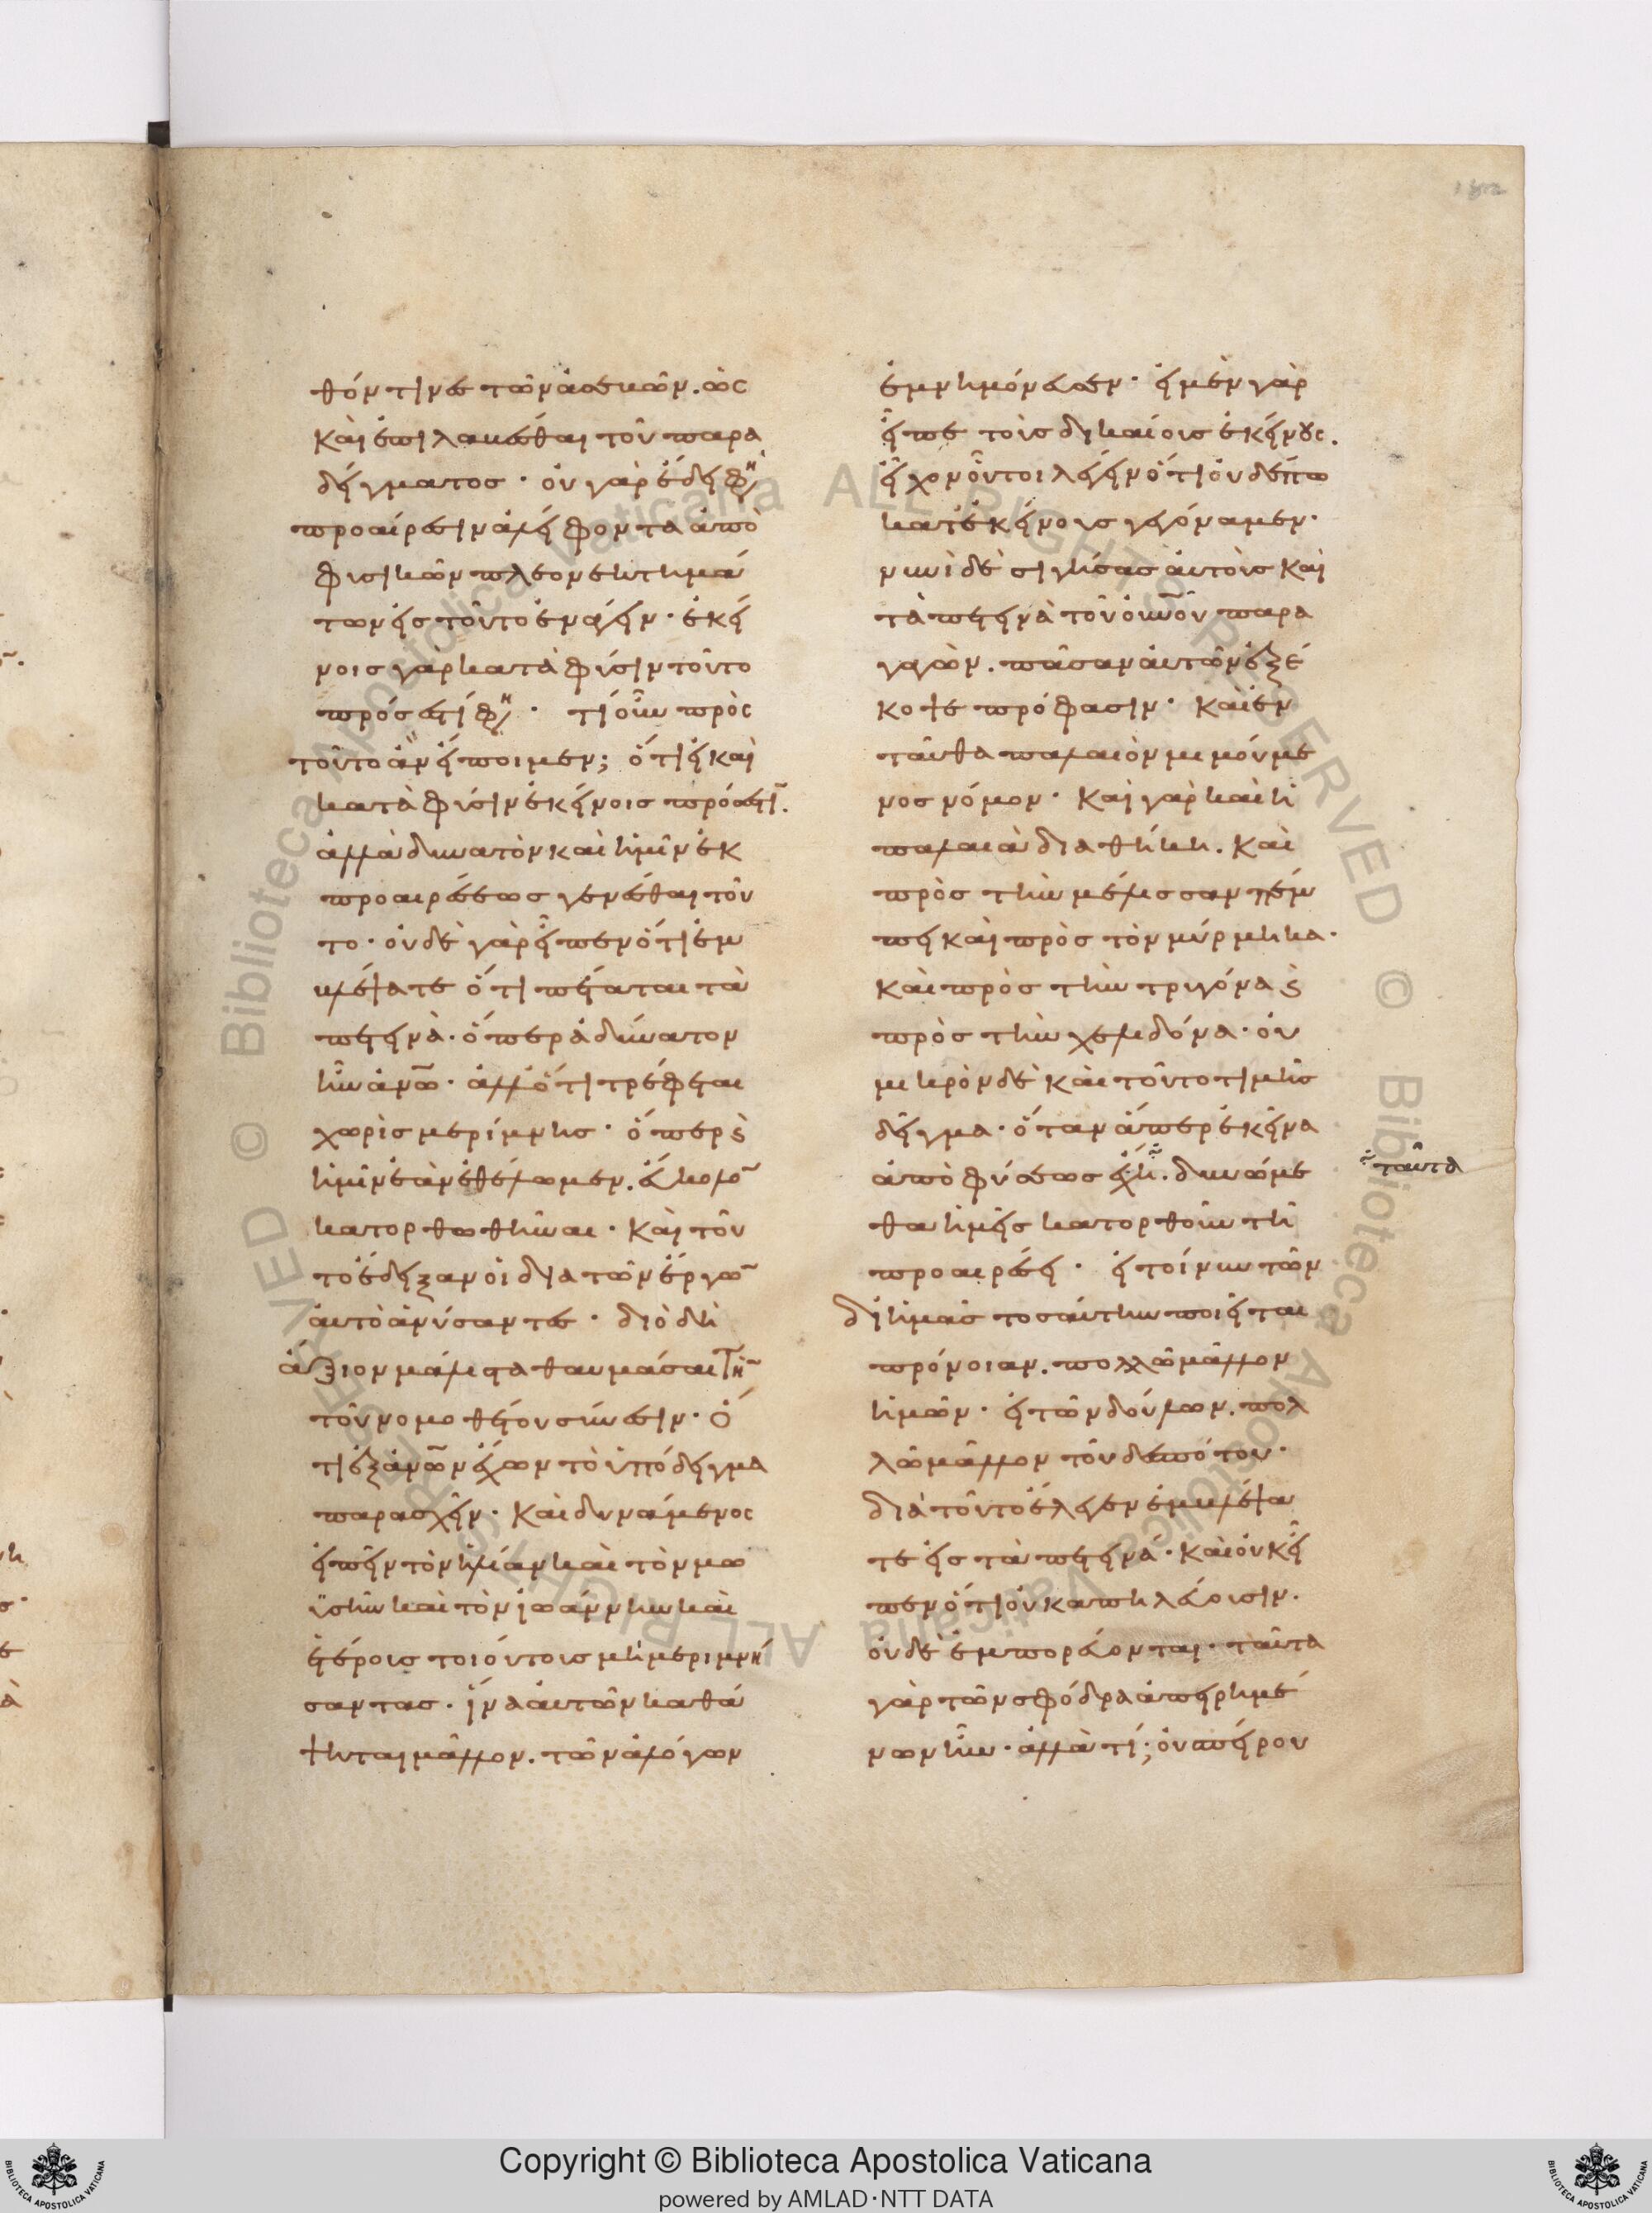 182
θόν τινες τῶν ἀσεβῶν. ὡς
καὶ ἐπιλαβέσθαι τοῦ παρα
δείγματος · οὐ γὰρ ἔδει φη(σὶ)
προαίρεσιν ἀλείφοντα ἀπὸ
φυσικῶν πλεονεκτημά
των εἰς τοῦτο ἐνάγειν · ἐκεί
νοις γὰρ κατὰ φύσιν τοῦτο
πρόσεστί φη(σι) · τί οὖν πρὸς
τοῦτο ἂν εἴποιμεν; ὅτι εἰ καὶ
κατὰ φύσιν ἐκείνοις πρόσεστι.
ἀλλὰ δυνατὸν καὶ ἡμῖν ἐκ
προαιρέσεως γενέσθαι τοῦ
το · οὐδὲ γὰρ εἶπεν ὅτι ἐμ
βλέψατε ὅτι πέταται τὰ
πετεινὰ · ὅπερ ἀδύνατον
ἦν ἀνω · ἀλλ' ὅτι τρέφεται
χωρὶς μερίμνης · ὅπερ καὶ
ἡμῖν ἐὰν ἐθέλωμεν. εὔκολον
κατορθωθῆναι · καὶ τοῦ
το ἔδειξαν οἱ διὰ τῶν ἔργων
αὐτὸ ἀνύσαντες · διὸ δὴ
ἄξιον μάλιστα θαυμάσαι τὴν
τοῦ νομοθέτου σύνεσιν · ὅ
τι ἐξ ἀνων ἔχων τὸ ὑπόδειγμα
παρασχεῖν · καὶ δυνάμενος
εἰπεῖν τὸν ἠλίαν καὶ τὸν μω
ϋσῆν καὶ τὸν ἰωάννην καὶ
ἑτέροις τοιούτοις μὴ μεριμνή
σαντας · ἵνα αὐτῶν καθά
ψηται μᾶλλον. τῶν ἀλόγων
ἐμνημόνευσεν · εἰ μὲν γὰρ
εἶπε τοὺς δικαίους ἐκείνους.
εἶχον οὗτοι λέγειν ὅτι οὐδέπω
κατ' ἐκείνους γεγόναμεν·
νυνὶ δὲ σιγήσας αὐτοὺς καὶ
τὰ πετεινὰ τοῦ οὐνοῦ παρα
γαγὼν. πᾶσαν αὐτῶν ἐξέ
κοψε πρόφασιν · κἀν
ταῦθα παλαιὸν μιμούμε
νος νόμον · καὶ γὰρ καὶ ἡ
παλαιὰ διαθήκη. καὶ
πρὸς τὴν μέλισσαν πέμ
πει καὶ πρὸς τὸν μύρμηκα·
καὶ πρὸς τὴν τρυγόνα καὶ
πρὸς τὴν χελιδόνα · οὐ
μικρὸν δὲ καὶ τοῦτο τιμῆς
δεῖγμα · ὅταν ἅπερ ἐκεῖνα
ἀπὸ φύσεως ἔχῃ. δυνώμε
ταῦτα
θα ἡμεῖς κατορθοῦν τῇ
προαιρέσει · εἰ τοίνυν τῶν
δι' ἡμᾶς τοσαύτην ποιεῖται
πρόνοιαν. πολλῶ μᾶλλον
ἡμῶν · εἰ τῶν δούλων. πολ
λῶ μᾶλλον τοῦ δεσπότου ·
διὰ τοῦτο ἔλεγεν ἐμβλέψα
τε εἰς τὰ πετεινά · καὶ οὐκ εἶ
πεν ὅτι οὐ καπηλεύουσιν.
οὐδὲ ἐμπορεύονται · ταῦτα
γὰρ τῶν σφόδρα ἀπειρημέ
νων ἦν · ἀλλὰ τί; οὐ σπείρου